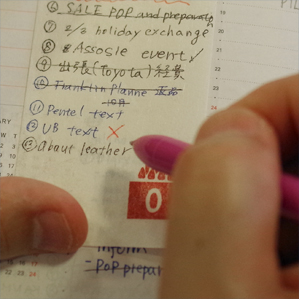 ⑥ SALE POP and preparate
⑦ 2/3 holiday exchange
⑧ 8 Assosie event ✓
⑨ 出張(Toyota)経費
⑩ Franklin Planne
⑪ Pentel text
⑫ UB text ×
⑬ About leather
0
inform
- POP prepar